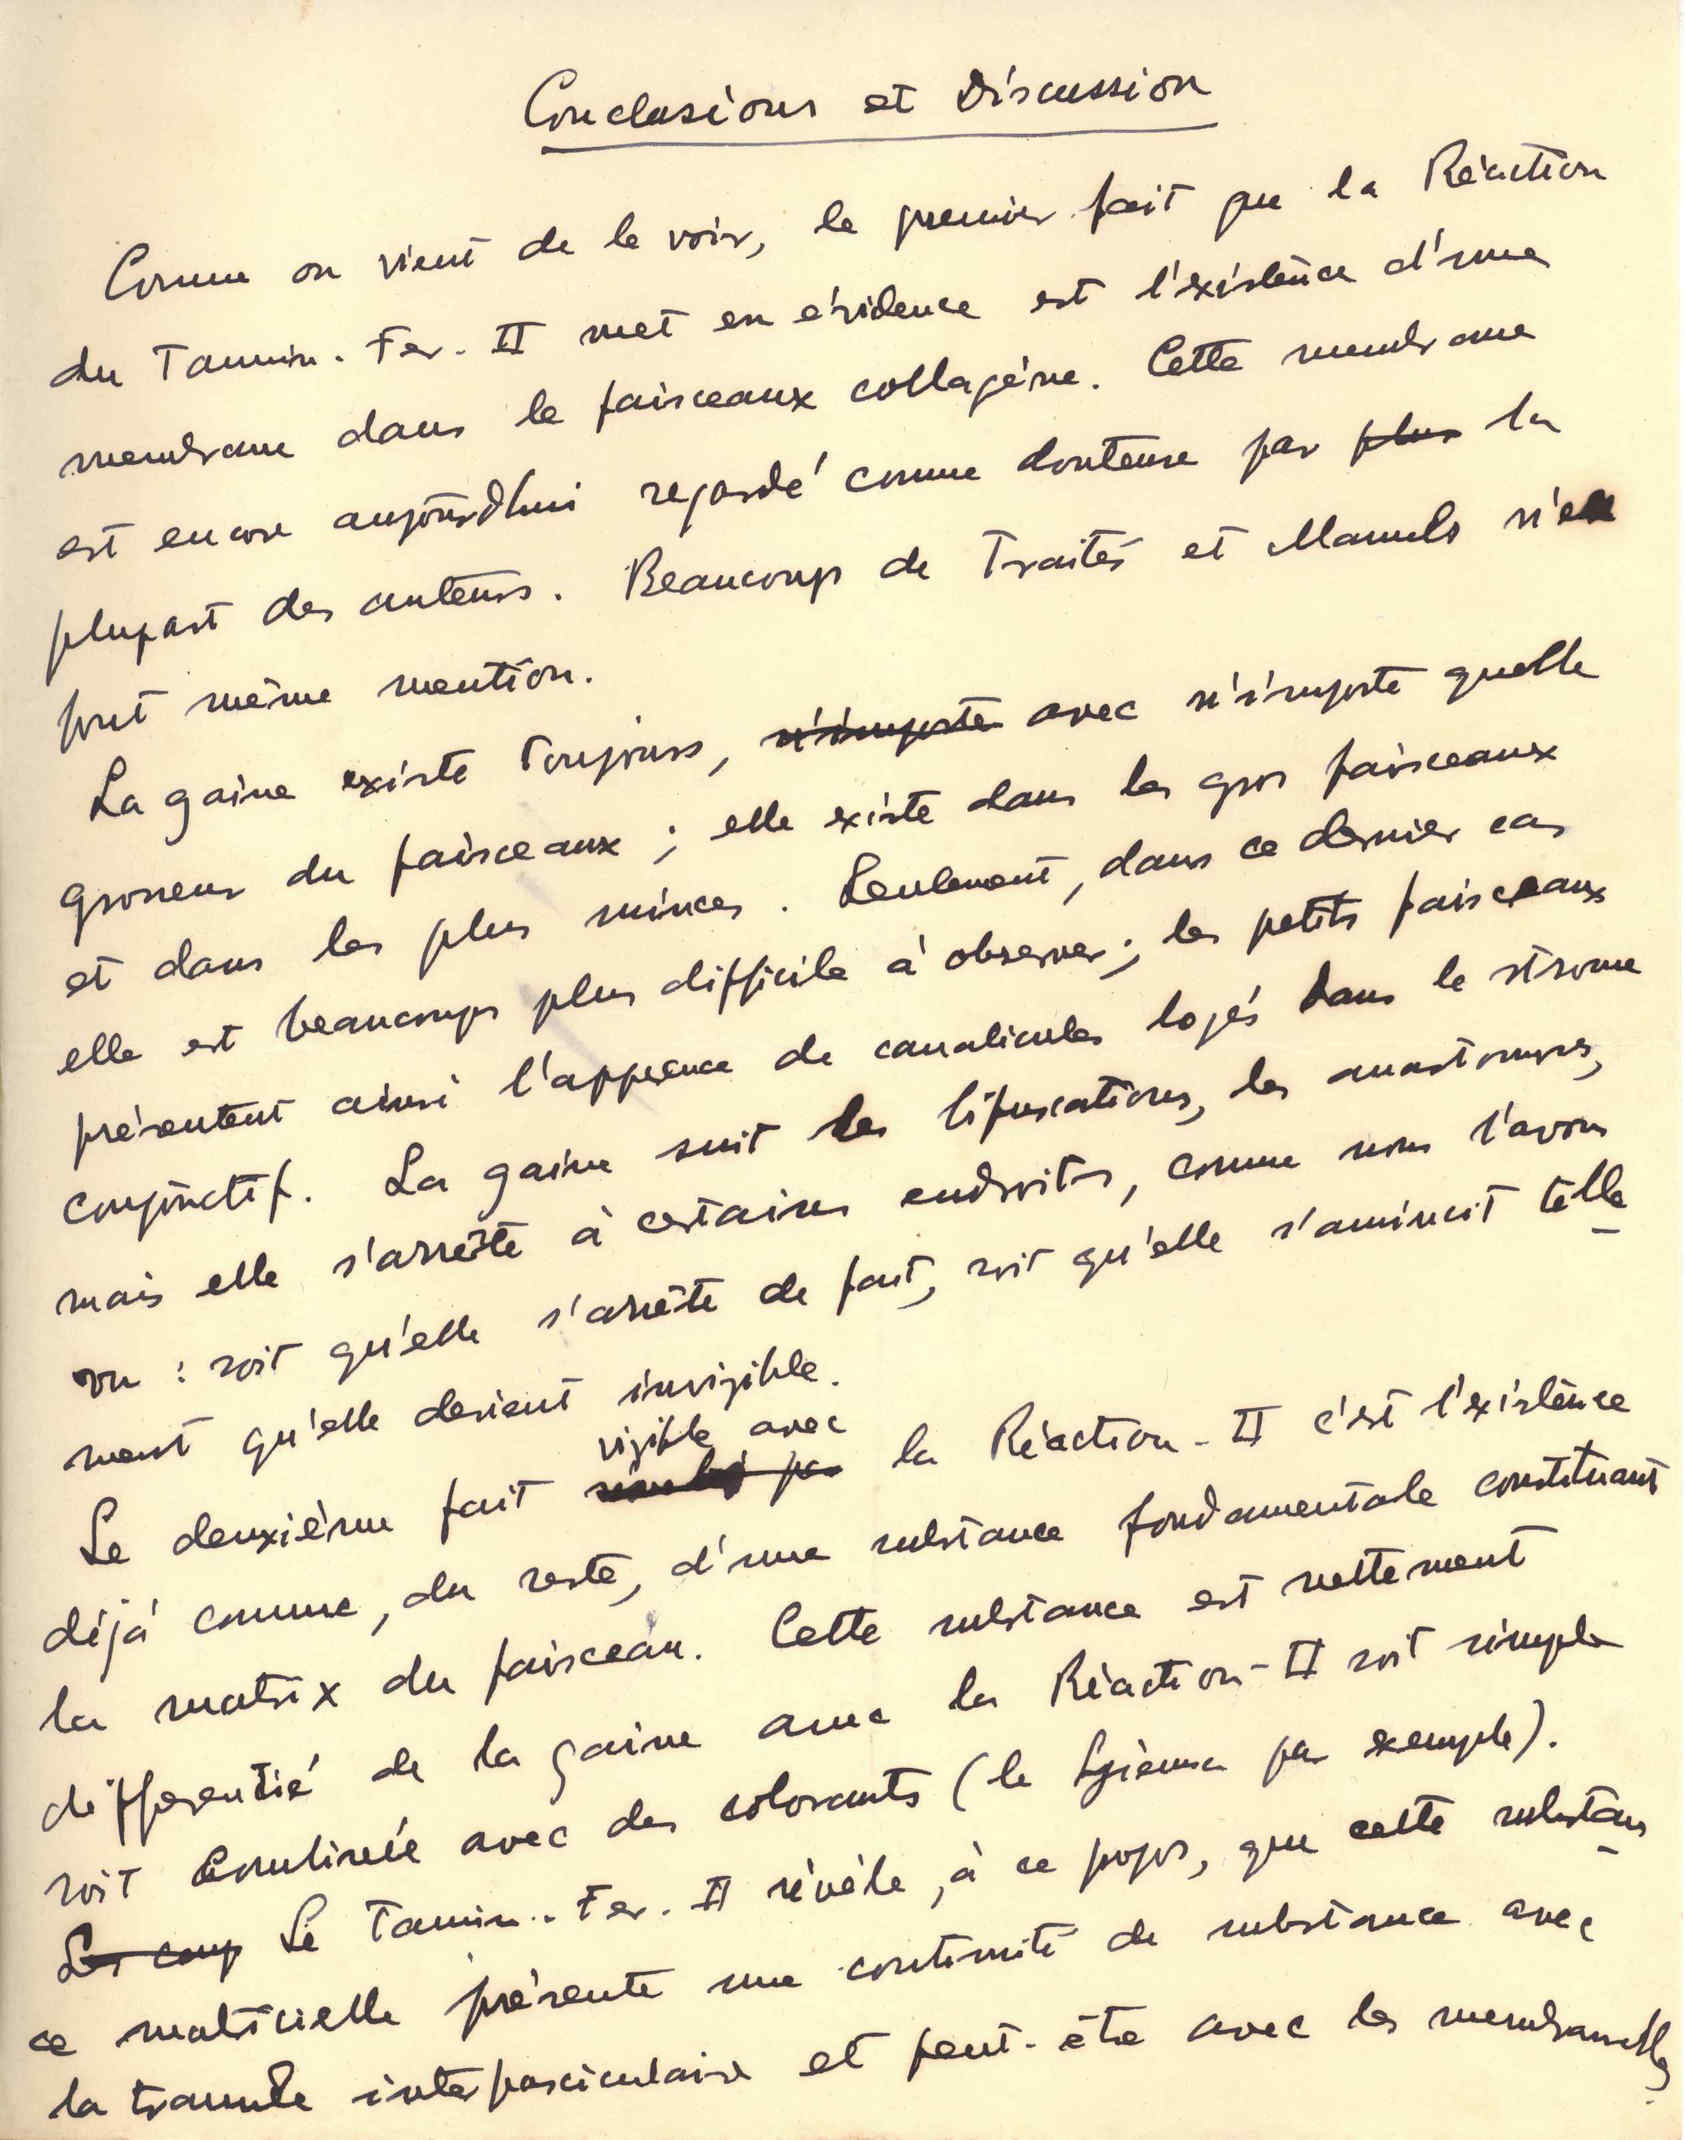 Conclusions et Discussion
Comme on vient de le voir, le premier fait que la Réaction
du Tannin-Fer-II met en évidence est l'existence d'une
membrane dans le faisceaux collagène. Cette membrane
est encore aujourd'hui regardé comme douteuse par plus la
plupart des auteurs. Beaucoup de Traités et Manuels n'en
font même mention.
La gaine existe toujours, n'importe avec n'importe quelle
grosseur du faisceaux ; elle existe dans les gros faisceaux
et dans les plus minces. Seulement, dans ce dernier cas
elle est beaucoup plus difficile à observer ; les petits faisceaux
présentent ainsi l'apparence de canalicules logés dans le stroma
conjonctif. La gaine suit les bifurcations, les anastomoses,
mais elle s'arrête à certains endroits, comme nous l'avons
vu : soit qu'elle s'arrête de fait, soit qu'elle s'amincit telle
ment qu'elle devient invisible.
visible avec
Le deuxième fait la Réaction-II c'est l'existence
déjà connue, du reste, d'une substance fondamentale constituant
la matrix du faisceau. Cette substance est nettement
différentié de la gaine avec la Réaction-II soit simple
soit combinée avec des colorants (le Giemsa par exemple).
Les coup Le Tannin-Fer-II révèle, à ce propos, que cette substan
ce matricielle présente une continuité de substance avec
la trame interfasciculaire et peut-être avec les membranelles